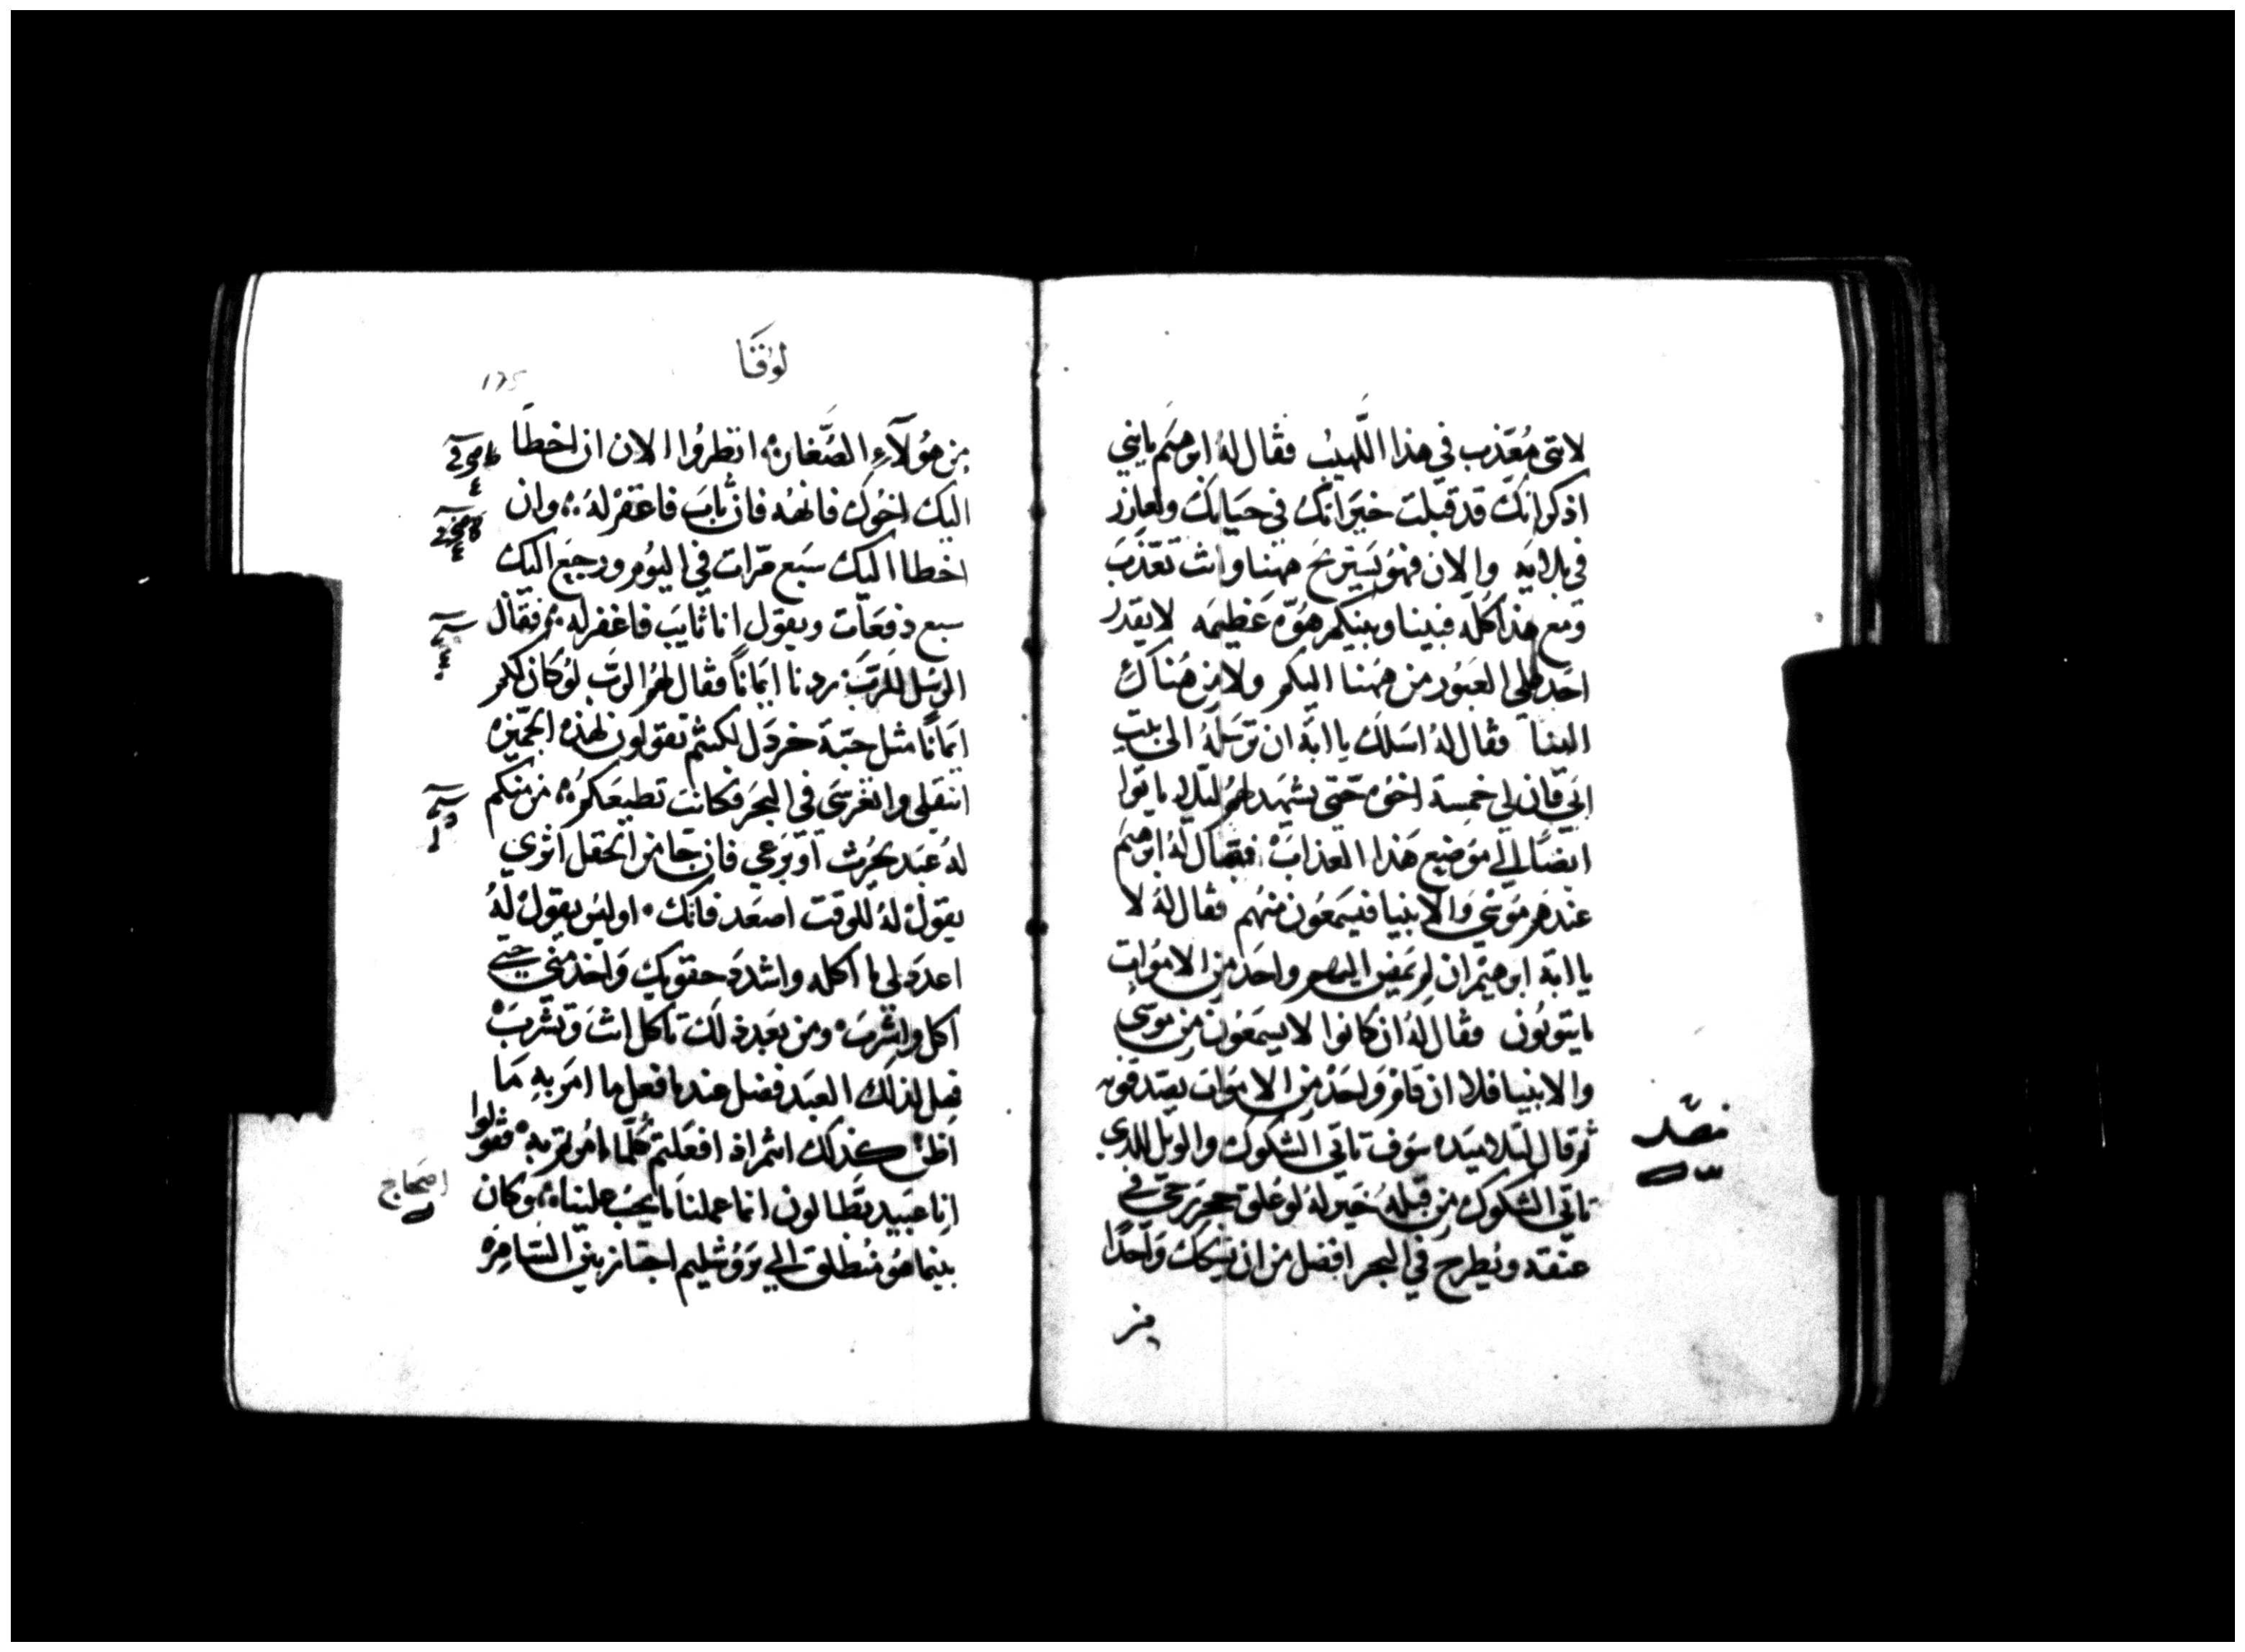 لاني مُعَذب في هذا اللّهيب فقال لهُ ابرهيم يابني
اذكر انك قد قبلت خيراتك في حياتك ولعازر
في بلاياه والان فهو يستريح ههنا وانت تعذب
ومع هذا كله فبيننا وبينكم هوّه عظيمه لا يقدر
احد على العبور من ههنا اليكم ولا من هناك
الينا فقال لهُ اسلك يا ابة ان ترسله الى بيت
ابي فان لي خمسة اخوه حتى يشهد لهم ليلا ياتوا
ايضًا الي موضع هذا العذاب فقال لهُ ابرهيم
عندهم موسى والانبيا فيسمعون منهم فقال لهُ لا
يا ابة ابرهيم ان لم يمضي اليهم واحد من الاموات
مايتوبون فقال لهُ ان كانوا لا يسمعون من موسى
والانبيا فلا ان قام واحد من الاموات يصدقونه
ثم قال لتلاميده سوف تاتي الشكوك والويل للدي
تاتي الشكوك من قبله خير لهُ لو علق حجر رحى في
عنقه ويطرح في البحر افضل من ان يشكك واحدًا
من
لوقا
من هولآء الصغار انظروا الان ان اخطا
اليك اخوك فانهه فان تاب فاغفر لهُ وان
اخطا اليك سبع مرات في اليوم ورجع اليك
سبع دفعات ويقول انا تايب فاغفر له فقال
الرسل للرب زدنا ايمانًا فقال لهم الرب لو كان لكم
ايمانًا مثل حبة خردل لكنتم تقولون لهذه الجميزه
انتقلي وانغرسي في البحر فكانت تطيعكم من منكم
لهُ عبد يحرث او يرعي فان جا من الحقل اتري
يقول لهُ للوقت اصعد فاتك او ليس يقول لهُ
اعدد لي ما اكله واشدد حقويك واخدمني حتى
اكل واشرب ومن بعد ذلك تاكل انت وتشرب
فهل لذلك العبد فضل عندما فعل ما امر به ما
اظن كذلك انتم اذا فعلتم كلما امرتم به فقولوا
انا عبيد بطالون انما عملنا ما يجب علينا وكان
بينما هو منطلق الي يروشليم اجتاز بين السامره
اصحاح